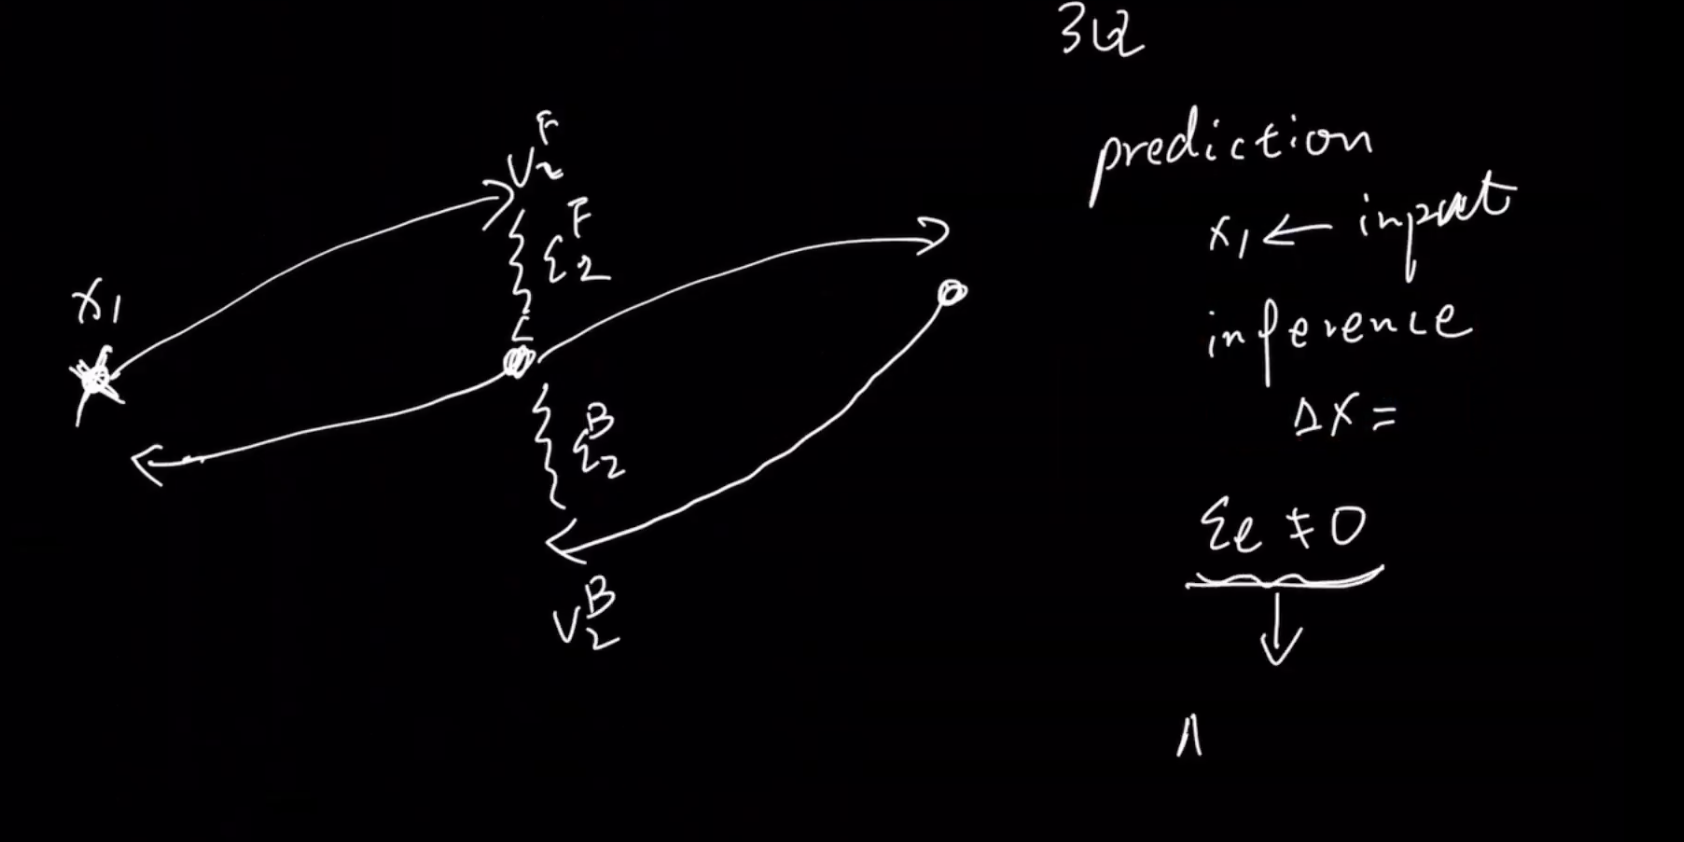 V₂ᶠ
ε₂ᶠ
x₁
ε₂ᴮ
V₂ᴮ
prediction
x₁ ← input
inference
Δx =
εe ≠ 0
↓